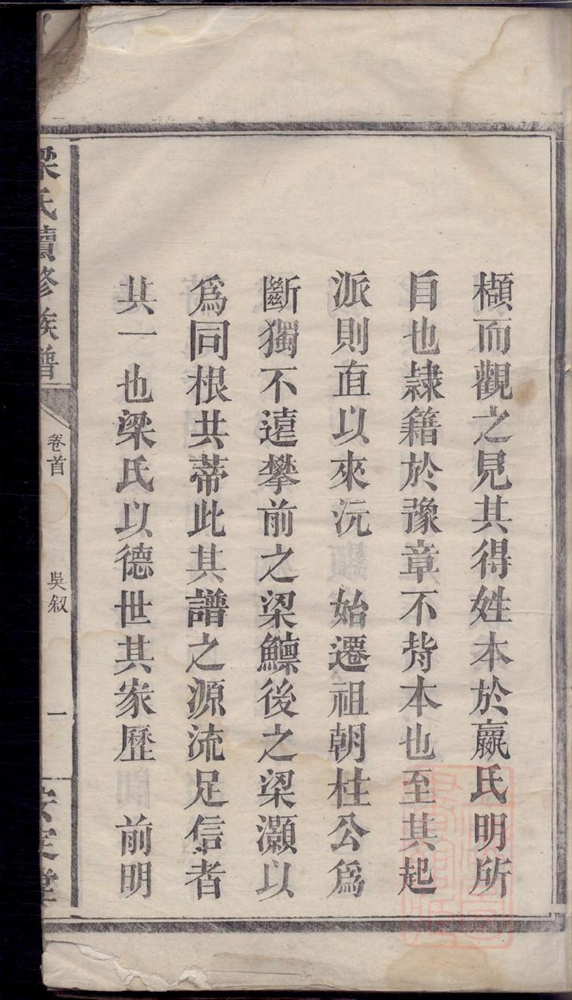 纈而觀之見其得姓本於嬴氏明所
自也隸籍於豫章不背本也至其起
派則直以來沅 始遷祖朝柱公爲
斷獨不遠攀前之梁鱣後之梁灝以
爲同根共蒂此其譜之源流足信者
其一也梁氏以德世其家歷 前明
梁氏續修族譜
卷首
吳叙
一
安定堂